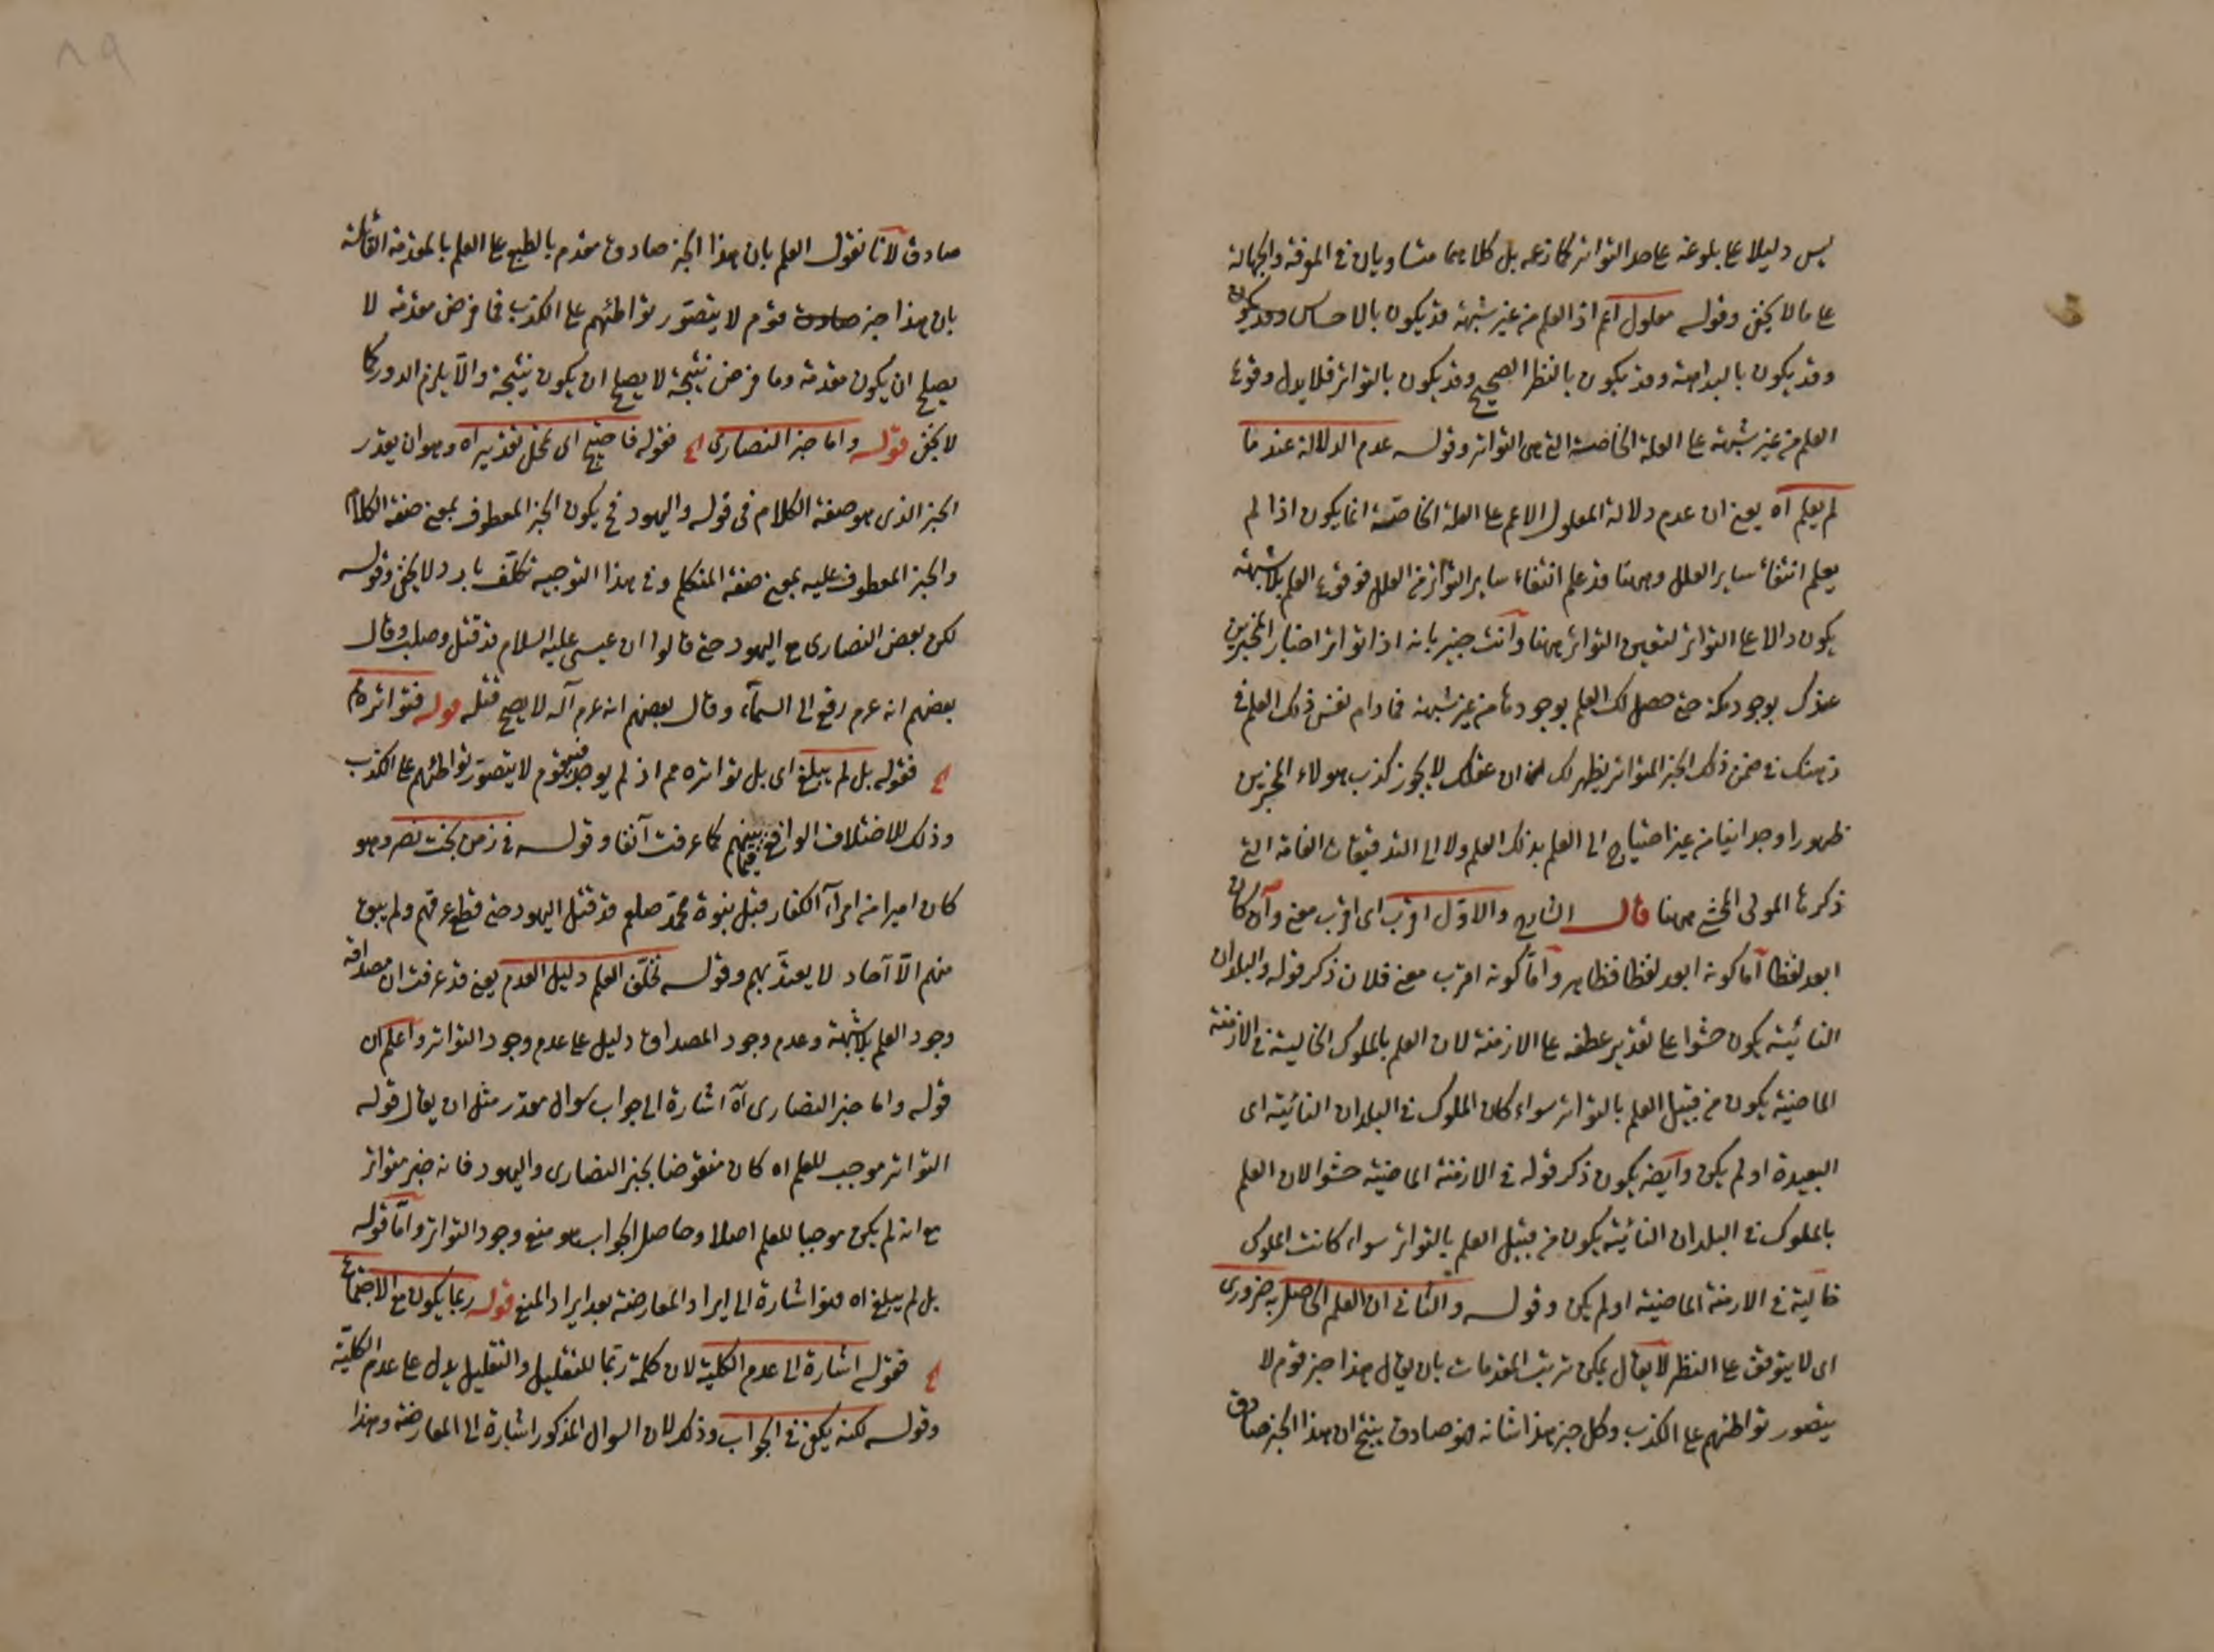 ليس دليلا على بلوغه على حد التواتر كما زعمه بل كلاهما متساويان في المعرفة والجهالة
على ما لا يخفى وقوله معلول اعم اذ العلم من غير شبهة قد يكون بالاحساس وقد يكون
وقد يكون بالبداهة وقد يكون بالنظر الصحيح وقد يكون بالتواتر فلا يدل وقوع
العلم من غير شبهة على العلة الخاصة التي هي التواتر وقوله عدم الدلالة عند ما
لم يعلم اه يعني ان عدم دلالة المعلول الاعم على العلة الخاصة انما يكون اذا لم
يعلم انتفاء سائر العلل وههنا قد علم انتفاء سائر التواتر من العلل فوقوع العلم بلا شبهة
يكون دالا على التواتر لتعين التواتر ههنا وانت خبير بانه اذا تواتر اخبار المخبرين
عندك بوجود مكة حتى حصل لك العلم بوجودها من غير شبهة فما دام نفس ذلك العلم في
ذهنك في ضمن ذلك الخبر المتواتر يظهر لك ان عقلك لا يجوز كذب هولاء المخبرين
ظهورا وجدانيا من غير احتياج الى العلم بذلك العلم ولا الى التدقيقات الغامة التي
ذكرها المولى المحشي ههنا قال الشارح والاول اقرب اى اقرب معنى وان كان
ابعد لفظا اما كونه ابعد لفظا فظاهر واما كونه اقرب معنى فلان ذكر قوله والبلدان
النائية يكون حشوا على تقدير عطفه على الازمنة لان العلم بالملوك الخالية في الازمنة
الماضية يكون من قبيل العلم بالتواتر سواء كان الملوك في البلدان النائية اى
البعيدة او لم يكن وايضه يكون ذكر قوله في الازمنة الماضية حشوا لان العلم
بالملوك في البلدان النائية يكون من قبيل العلم بالتواتر سواء كانت الملوك
خالية في الازمنة الماضية او لم يكن وقوله والثاني ان العلم الحاصل به ضروري
اى لا يتوقف على النظر لا يقال يمكن ترتيب المقدمات بان يقال هذا خبر قوم لا
يتصور تواطئهم على الكذب وكل خبر هذا شانه فهو صادق ينتج ان هذا الخبر صادق
صادق لانا نقول العلم بان هذا الخبر صادق مقدم بالطبع على العلم بالمقدمة القائلة
بان هذا خبر قوم لا يتصور تواطئهم على الكذب فما فرض مقدمة لا
يصلح ان يكون مقدمة وما فرض نتيجة لا يصلح ان يكون نتيجة والا يلزم الدور كما
لا يخفى قوله واما خبر النصارى اع فقوله فاحتيج الى تمحل تقديره اه وهو ان يقدر
الخبر الذى هو صفة الكلام في قوله واليهود فح يكون الخبر المعطوف بمعنى صفة الكلام
والخبر المعطوف عليه بمعنى صفة المتكلم وفي هذا التوجيه تكلف بارد لا يخفى وقوله
لكن بعض النصارى مع اليهود حتى قالوا ان عيسى عليه السلام قد قتل وصلب وقال
بعضهم انه عم رفع الى السماء وقال بعضهم انه عم اله لا يصح قتله قوله فتواتره مم
اع فقوله بل لم يبلغ اى بل تواتره مم اذ لم يوجد فيه قوم لا يتصور تواطئهم على الكذب
وذلك للاختلاف الواقع فيما بينهم كما عرفت آنفا وقوله في زمن بخت نصر وهو
كان اميرا من امراء الكفار قبل نبوة محمد صلعم قد قتل اليهود حتى قطع عرقهم ولم يبق
منهم الا آحاد لا يعتد بهم وقوله تخلف العلم دليل العدم يعني قد عرفت ان مصداقه
وجود العلم بلا شبهة وعدم وجود المصداق دليل على عدم وجود التواتر واعلم ان
قوله واما خبر النصارى اه اشارة الى جواب سوال مقدر مثل ان يقال قوله
التواتر موجب للعلم اه كان منقوضا بخبر النصارى واليهود فانه خبر متواتر
مع انه لم يكن موجبا للعلم اصلا وحاصل الجواب هو منع وجود التواتر واما قوله
بل لم يبلغ اه فهو اشارة الى ايراد المعارضة بعد ايراد المنع قوله ربما يكون مع الاجتماع
اع فقوله اشارة الى عدم الكلية لان كلمة ربما للتقليل والتقليل يدل على عدم الكلية
وقوله لكنه يكفي في الجواب وذلك لان السوال المذكور اشارة الى المعارضة وهذا
٨٩